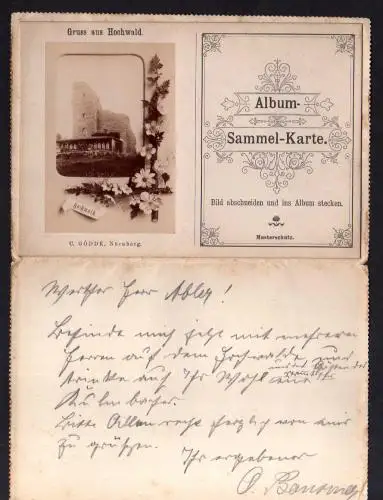 Gruss aus Hochwald.
Hochwald
C. GÖDDE, Nürnberg.
Album-
Sammel-Karte.
Bild abschneiden und ins Album stecken.
Musterschutz.
Werther Herr
Befinde mich jetzt mit mehreren
Herren auf dem Hochwalde und
trinke auf Ihr Wohl
Kulmbacher.
Bitte Allen recht herzlich von mir
zu grüssen.
Ihr ergebener